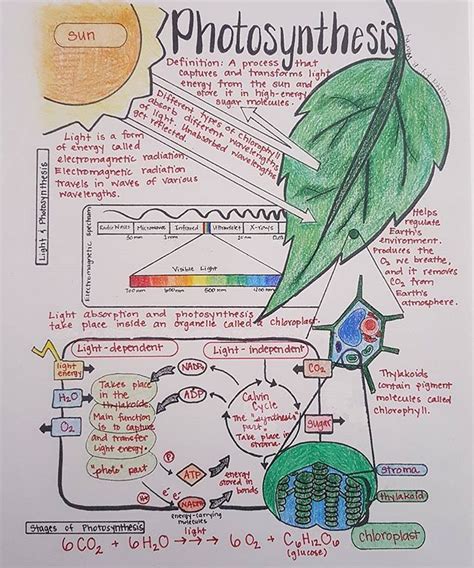 sun
Photosynthesis
Definition: A process that
captures and transforms light
energy from the sun and
store it in high-energy
sugar molecules.
Different types of chlorophyll
absorb different wavelengths
of light. Unabsorbed wavelengths
get reflected.
Light is a form
of energy called
electromagnetic radiation.
Electromagnetic radiation
travels in waves of various
wavelengths.
Light & Photosynthesis
Electromagnetic spectrum
Radio Waves Microwaves Infrared Ultraviolet X-rays
Visible Light
Helps
regulate
Earth's
environment.
Produces the
O₂ we breathe,
and it removes
CO₂ from
Earth's
atmosphere.
Light absorption and photosynthesis
take place inside an organelle called a chloroplast.
Light-dependent
Light-independent
light
energy
H₂O
O₂
Takes place
in the
thylakoids.
Main function
is to capture
and transfer
light energy.
"photo" part
NADP+
ADP
P
ATP
H+
e⁻ e⁻
NADPH
energy
stored in
bonds
energy-carrying
molecules
Calvin
Cycle
The "synthesis"
part.
Take place in
stroma.
CO₂
sugar
Thylakoids
contain pigment
molecules called
chlorophyll.
stroma
thylakoid
chloroplast
Stages of Photosynthesis
light
6 CO₂ + 6 H₂O → → → 6 O₂ + C₆H₁₂O₆
(glucose)